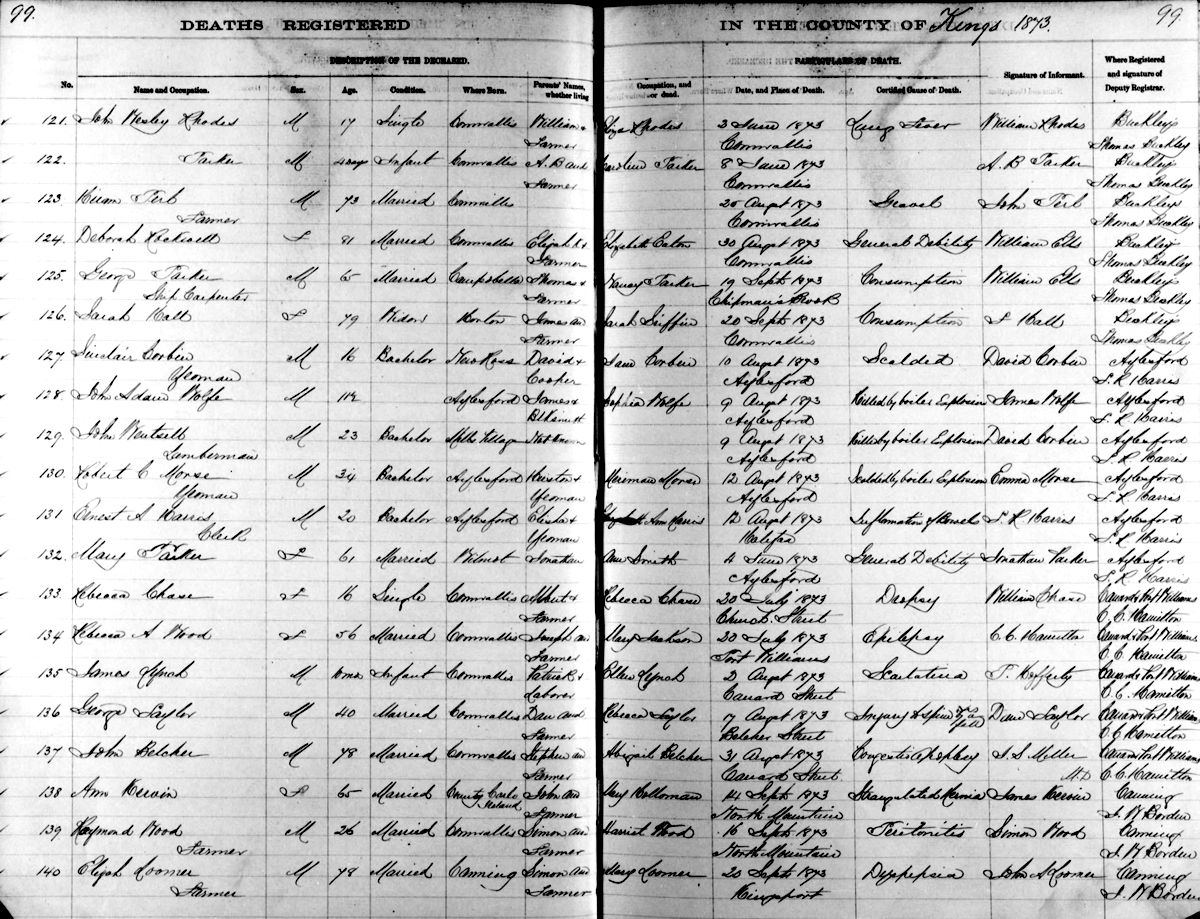 99. 99.
DEATHS REGISTERED IN THE COUNTY OF Kings 1873.
DESCRIPTION OF THE DECEASED. PARTICULARS OF DEATH.
No. Name and Occupation. Sex. Age. Condition. Where Born. Parents' Names, whether living Occupation, and or dead. Date, and Place of Death. Certified Cause of Death. Signature of Informant. Where Registered and signature of Deputy Registrar.
121. John Wesley Rhodes M 17 Single Cornwallis William & Eliza Rhodes 3 June 1873 Lung Fever William Rhodes Buckleys
Farmer Cornwallis Thomas Buckley
122. Parker M 4 days Infant Cornwallis A. B and Caroline Parker 8 June 1873 A. B Parker Buckleys
Farmer Cornwallis Thomas Buckley
123. Hiram M 73 Married Cornwallis 25 Augt 1873 Gravel John Buckleys
Farmer Cornwallis Thomas Buckley
124. Deborah Rockwell F 81 Married Cornwallis Elijah & Elizabeth Eaton 30 Augt 1873 General Debility William Ells Buckleys
Farmer Cornwallis Thomas Buckley
125. George Parker M 65 Married Thomas & Nancy Parker 19 Sept 1873 Consumption William Ells Buckleys
Ship Carpenter Farmer Chipman's Brook Thomas Buckley
126. Sarah Hall F 79 Widow Horton James and Sarah Griffin 20 Sept 1873 Consumption S Hall Buckleys
Farmer Cornwallis Thomas Buckley
127 Sinclair Corbin M 16 Bachelor New Ross David & Jane Corbin 10 Augt 1873 Scalded David Corbin Aylesford
Yeoman Cooper Aylesford S. R Harris
128. John Adam Wolfe M Aylesford James & Sophia Wolfe 9 Augt 1873 Killed by boiler Explosion James Wolfe Aylesford
Blksmith Aylesford S. R Harris
129. John Wentzell M 23 Bachelor Mills Village Not known 9 Augt 1873 Killed by boiler Explosion David Corbin Aylesford
Lumberman Aylesford S. R Harris
130. Robert C Morse M 34 Bachelor Aylesford & Morse 12 Augt 1873 Scalded by boiler Explosion Emma Morse Aylesford
Yeoman Yeoman Aylesford S. R Harris
131 Ernest A Harris M 20 Bachelor Aylesford Elisha & Ann Harris 12 Augt 1873 Inflamation of Bowels S. R Harris Aylesford
Clerk Yeoman Halifax S. R Harris
132. Mary Parker F 61 Married Wilmot Jonathan Ann Smith 4 June 1873 General Debility Jonathan Parker Aylesford
Aylesford S. R Harris
133. Rebecca Chase F 16 Single Cornwallis Albert & Rebecca Chase 20 July 1873 Dropsy William Chase Canard & Port Williams
Farmer Church Street C. C. Hamilton
134 Rebecca A Wood F 56 Married Cornwallis Joseph and Mary Jackson 20 July 1873 Epilepsy C. C. Hamilton Canard & Port Williams
Farmer Port Williams C. C. Hamilton
135 James Lynch M 10 mos Infant Cornwallis Patrick & Ellen Lynch 2 Augt 1873 Scarlatina T. Hefferty Canard & Port Williams
Laborer Canard Street C. C. Hamilton
136 George Saylor M 40 Married Cornwallis Dan and Rebecca Saylor 17 Augt 1873 Injury to spine by a fall Dan Saylor Canard & Port Williams
Farmer Belcher Street C. C. Hamilton
137 John Belcher M 78 Married Cornwallis Stephen and Abigail Belcher 31 Augt 1873 Congestive Apoplexy J. S Miller Canard & Port Williams
Farmer Canard Street M.D C. C. Hamilton
138 Ann Kervin F 65 Married County Ireland John and Mary Holloman 14 Sept 1873 Strangulated Hernia James Kervin Canning
Farmer North Mountain J. W Borden
139 Raymond Wood M 26 Married Cornwallis Simon and Harriet Wood 16 Sept 1873 Peritonitis Simon Wood Canning
Farmer Farmer North Mountain J. W Borden
140 Elijah Loomer M 78 Married Canning Simon and Mary Loomer 20 Sept 1873 Dyspepsia John A Loomer Canning
Farmer Farmer Kingsport J. W Borden